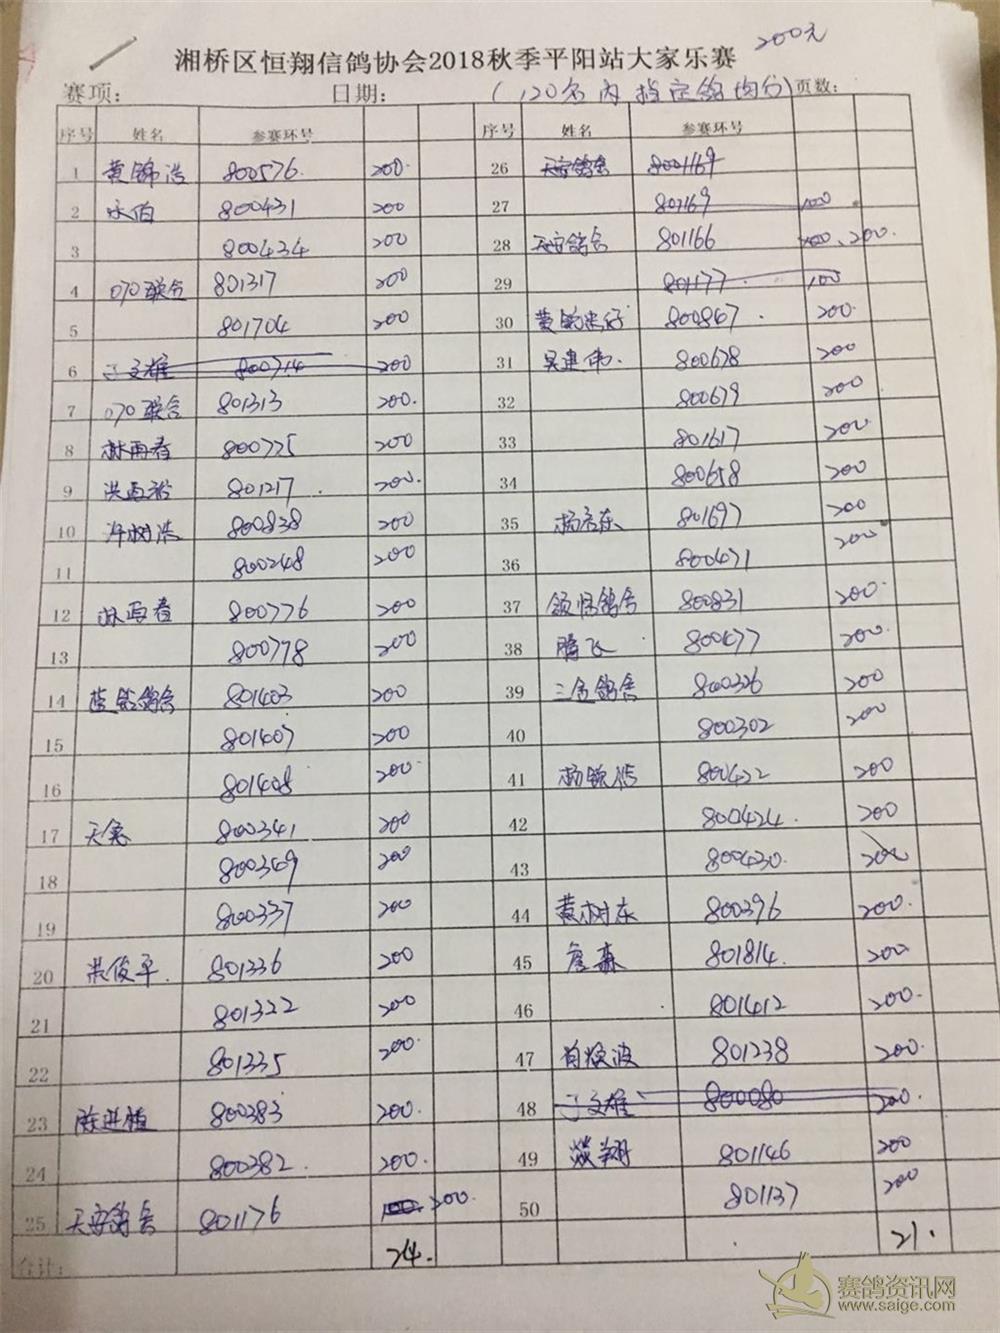 200元
湘桥区恒翔信鸽协会2018秋季平阳站大家乐赛
赛项: 日期: (120名内指定鸽均分) 页数:
序号 姓名 参赛环号 序号 姓名 参赛环号
1 黄锦浩 800576. 200. 26 天安鸽舍 8001169
2 永伯 800431 200 27 801169 100
3 800434 200 28 天安鸽舍 801166 200.
4 070联合 801317 200 29 801177. 100
5 801704 200 30 800867. 200.
6 丁文雄 800714 200 31 吴建伟. 800678 200
7 070联合 801313 200. 32 800679 200
8 林再春 800775 200 33 801617 200.
9 801217. 200. 34 800658 200
10 许树浩 800838 200 35 801697 200
11 800248 200 36 800471 200.
12 林再春 800776 200 37 鸽舍 800831 200.
13 800778 200 38 腾飞 800477 200.
14 蓝钻鸽舍 801403 200 39 三色鸽舍 800326 200
15 801407 200 40 800302 200
16 801408 200. 41 800422 200
17 天象 800341 200 42 800424. 200
18 800349 200 43 800430. 200
19 800337 200 44 黄树东 800396 200.
20 洪俊平. 801336 200 45 詹森 801814. 200
21 801322 200 46 801412 200.
22 801335 200. 47 801238 200.
23 800383 200. 48 丁文雄 800080 200.
24 800382. 200. 49 燚翔 801146 200
25 天安鸽舍 801176 100 200. 50 801137 200
合计: 24. 21.
赛鸽资讯网
www.saige.com